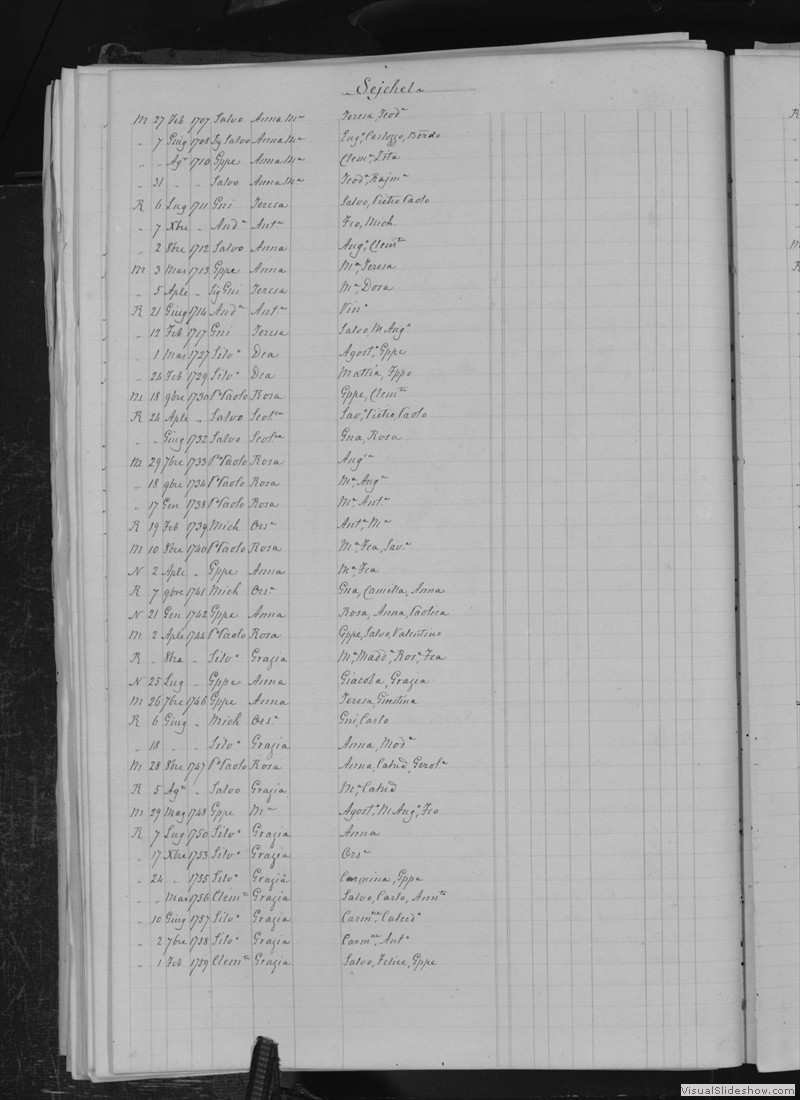 Sejchel
M 27 Feb 1707 Salvo Anna Mª Teresa, Teodª
" 7 Giug 1708 Sg Salvo Anna Mª Eugª, Carlozzo, Berdo
" " Agº 1710 Gppe Anna Mª Clemª, Zita
" 31 " " Salvo Anna Mª Teodª, Rajmª
R 6 Lug 1711 Gni Teresa Salvo, Pietro Paolo
" 7 Xbre " Andª Antª Fco, Mich.
" 2 8bre 1712 Salvo Anna Augº, Clemte
M 3 Mar 1713 Gppe Anna Mª, Teresa
" 5 Aple " Sig Gni Teresa Mª, Dora
R 21 Giug 1714 Andª Antª Vinº
" 12 Feb 1717 Gni Teresa Salvo, M Augº
" 1 Mar 1727 Silvº Dea Agostº, Gppe
" 24 Feb 1729 Silvº Dea Mattia, Fppo
M 18 9bre 1730 Pº Paolo Rosa Gppe, Clemte
R 24 Aple " Salvo Scolca Savº, Pietro, Paolo
" " Giug 1732 Salvo Scolca Gna, Rosa
M 29 7bre 1733 Pº Paolo Rosa Augna
" 18 9bre 1734 Pº Paolo Rosa Mª, Augª
" 17 Gen 1738 Pº Paolo Rosa Mª, Antª
R 19 Feb 1739 Mich Orsª Antª, Mª
M 10 8bre 1740 Pº Paolo Rosa Mª, Fca, Savª
N 2 Aple " Gppe Anna Mª, Fca
R 7 9bre 1741 Mich Orsª Gna, Camilla, Anna
N 21 Gen 1742 Gppe Anna Rosa, Anna, Paolica
M 2 Aple 1744 Pº Paolo Rosa Gppe, Salvo, Valentino
R " 8bre " Silvº Grazia Mª, Maddª, Rosª, Fca
N 25 Lug " Gppe Anna Giacoba, Grazia
M 26 7bre 1746 Gppe Anna Teresa, Giustina
R 6 Giug " Mich Orsª Gni, Carlo
" 18 " " Silvº Grazia Anna, Modª
M 28 8bre 1747 Pº Paolo Rosa Anna, Catud, Gerolª
R 5 Agº " Salvo Grazia Mª, Catud
M 29 Mag 1748 Gppe Mª Agostº, M Augº, Fco
R 7 Lug 1750 Silvº Grazia Anna
" 17 Xbre 1753 Silvº Grazia Orsª
" 24 " 1755 Silvº Grazia Carmina, Gppa
" " Mar 1756 Clemte Grazia Salvo, Carlo, Annto
" 10 Giug 1757 Silvº Grazia Carmna, Calcedª
" 2 7bre 1758 Silvº Grazia Carmne, Antº
" 1 Feb 1759 Clemte Grazia Salvo, Felice, Gppe
VisualSlideshow.com